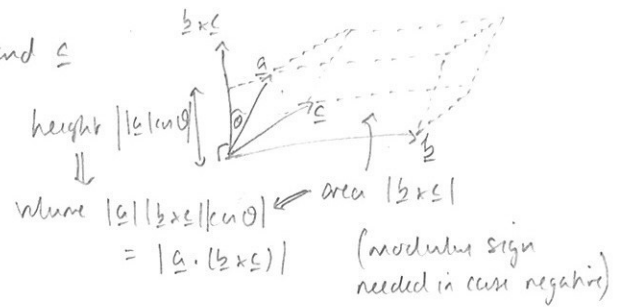 b × c
and c
a
height ||a|cos θ|
θ
c
b
⇓
volume |a||b×c||cos θ| ⇐ area |b×c|
= |a·(b×c)|
(modulus sign
needed in case negative)